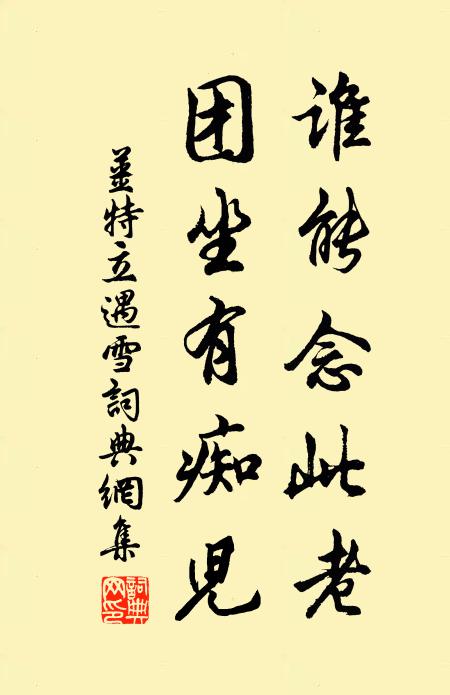 谁能念此老
团坐有痴児
姜特立遇雪詞典網集
詞典網印